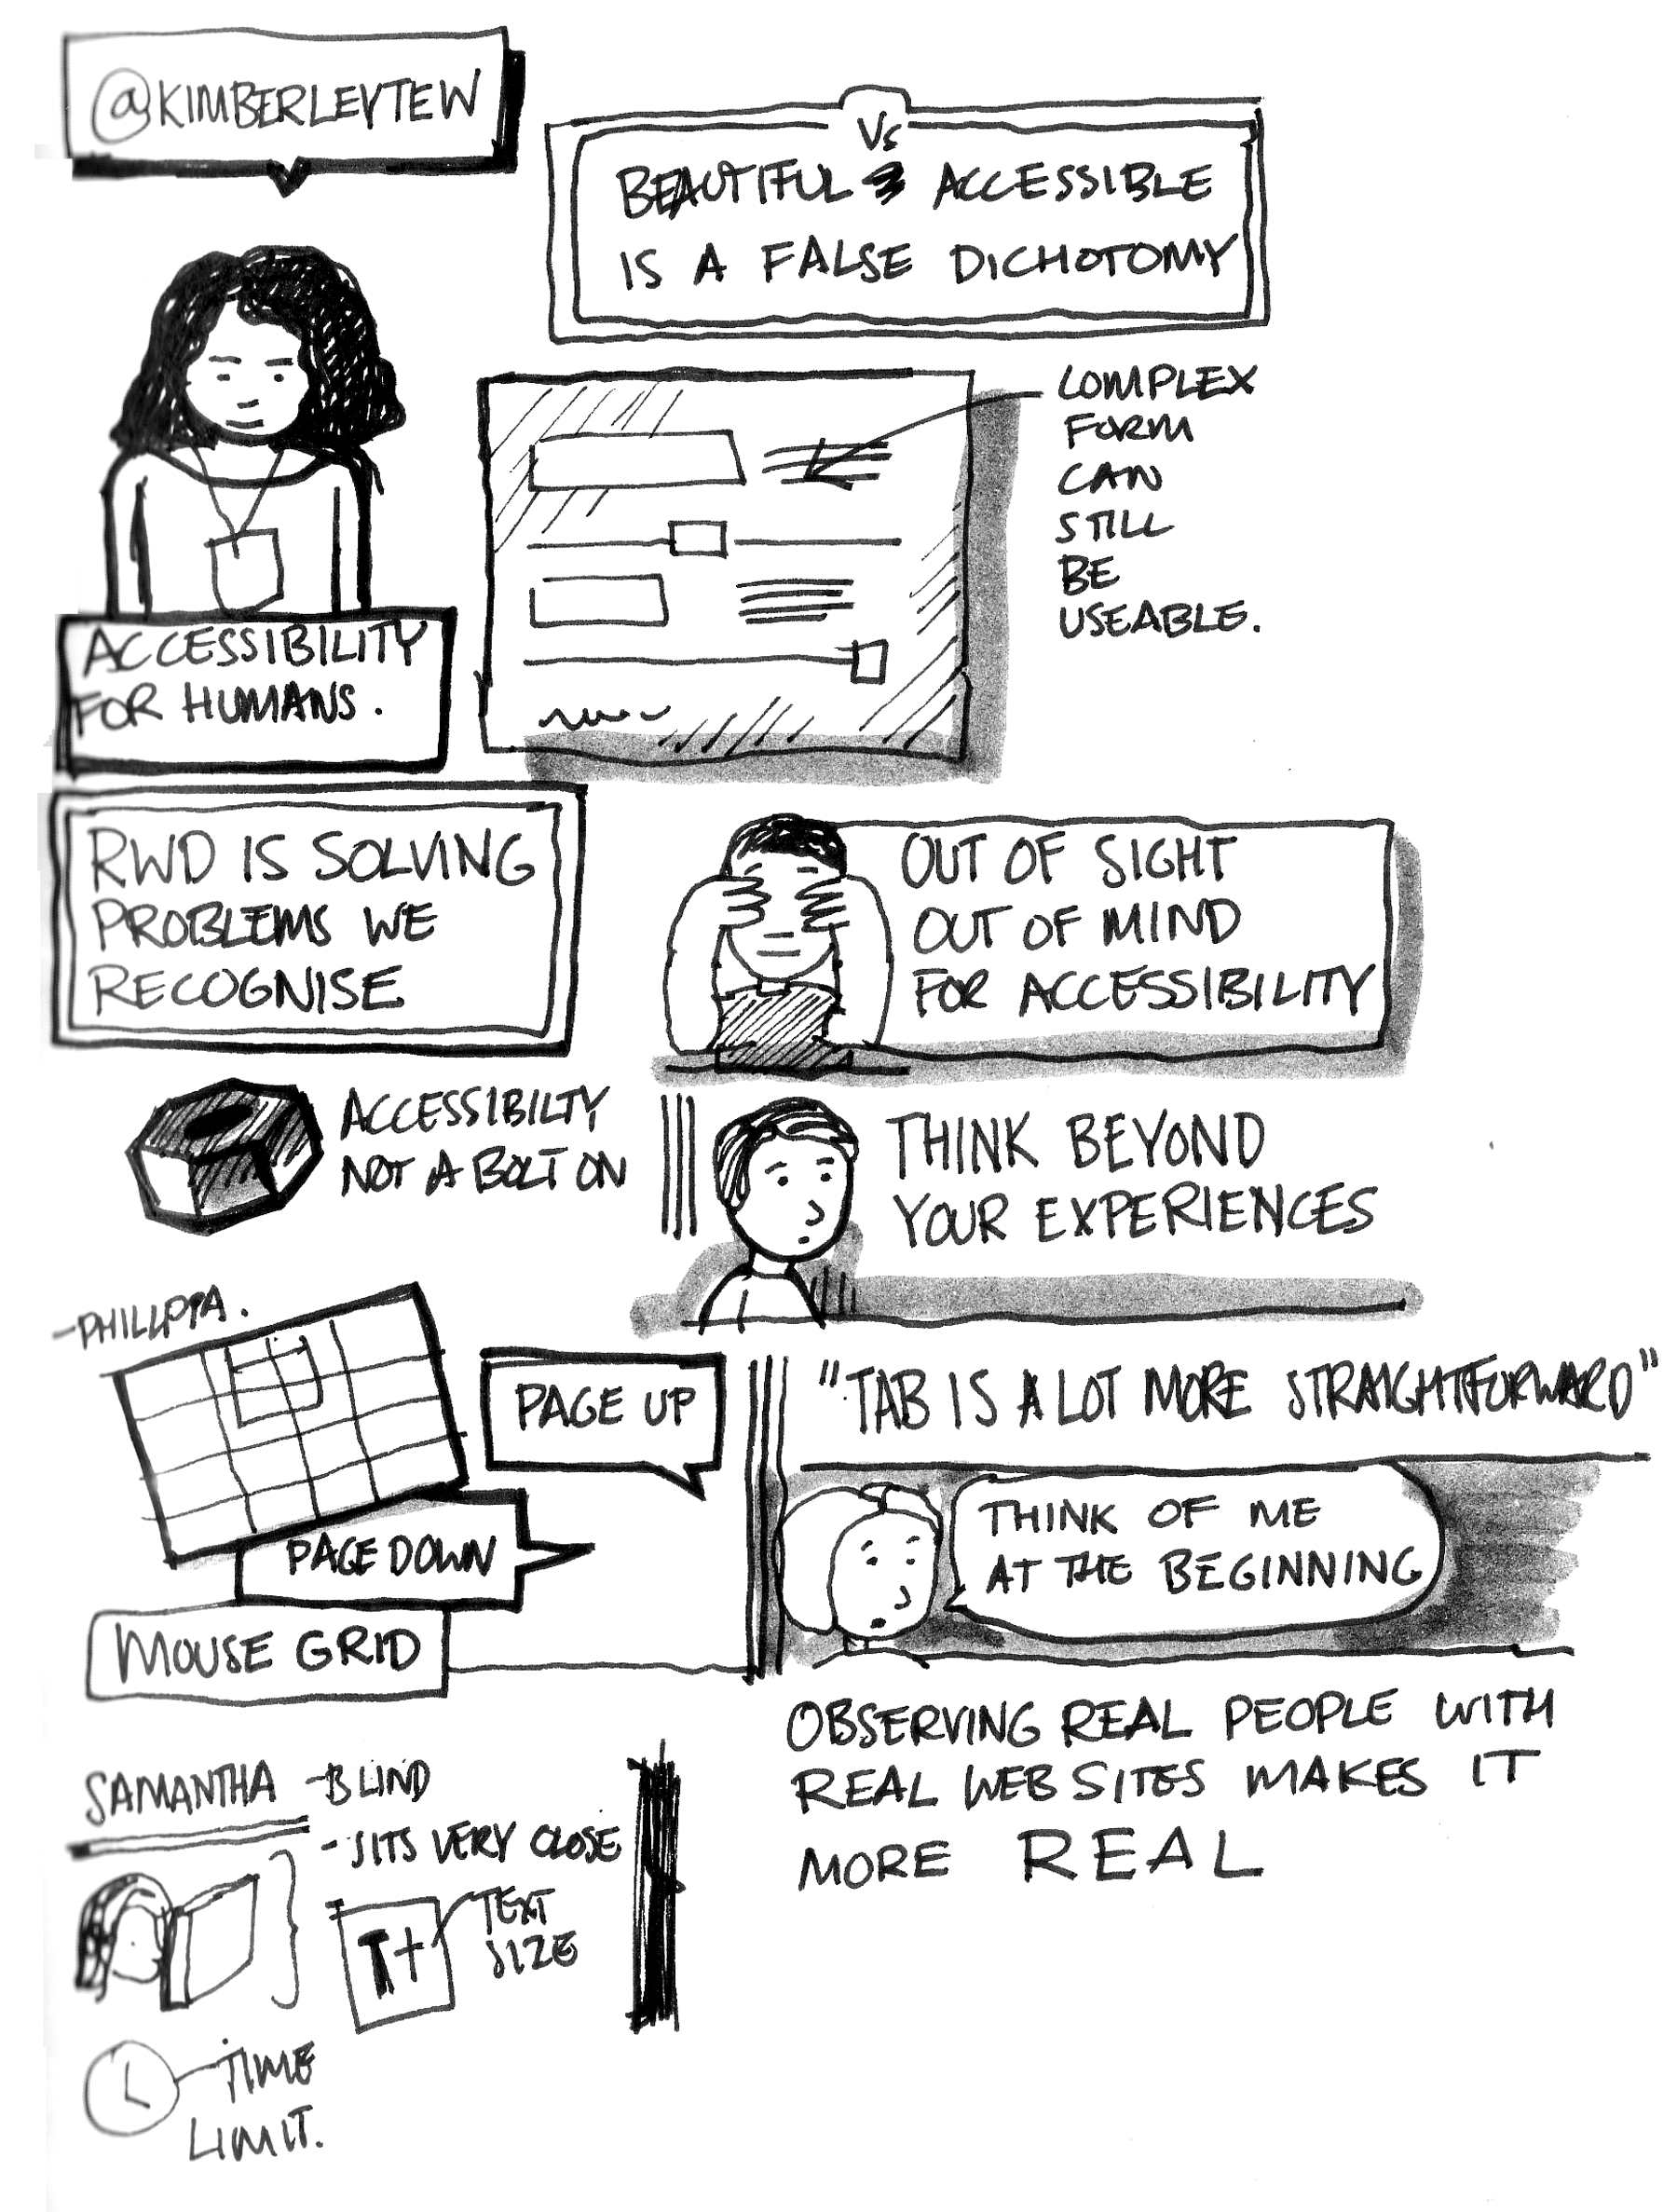 @KIMBERLEYTEW
Vs
BEAUTIFUL ACCESSIBLE
IS A FALSE DICHOTOMY
COMPLEX
FORM
CAN
STILL
BE
USEABLE.
ACCESSIBILITY
FOR HUMANS.
RWD IS SOLVING
PROBLEMS WE
RECOGNISE
OUT OF SIGHT
OUT OF MIND
FOR ACCESSIBILITY
ACCESSIBILTY
NOT A BOLT ON
THINK BEYOND
YOUR EXPERIENCES
-PHILLPPA.
PAGE UP
PAGE DOWN
MOUSE GRID
"TAB IS A LOT MORE STRAIGHTFORWARD"
THINK OF ME
AT THE BEGINNING
OBSERVING REAL PEOPLE WITH
REAL WEBSITES MAKES IT
MORE REAL
SAMANTHA -BLIND
-SITS VERY CLOSE
T+
TEXT
SIZE
TIME
LIMIT.